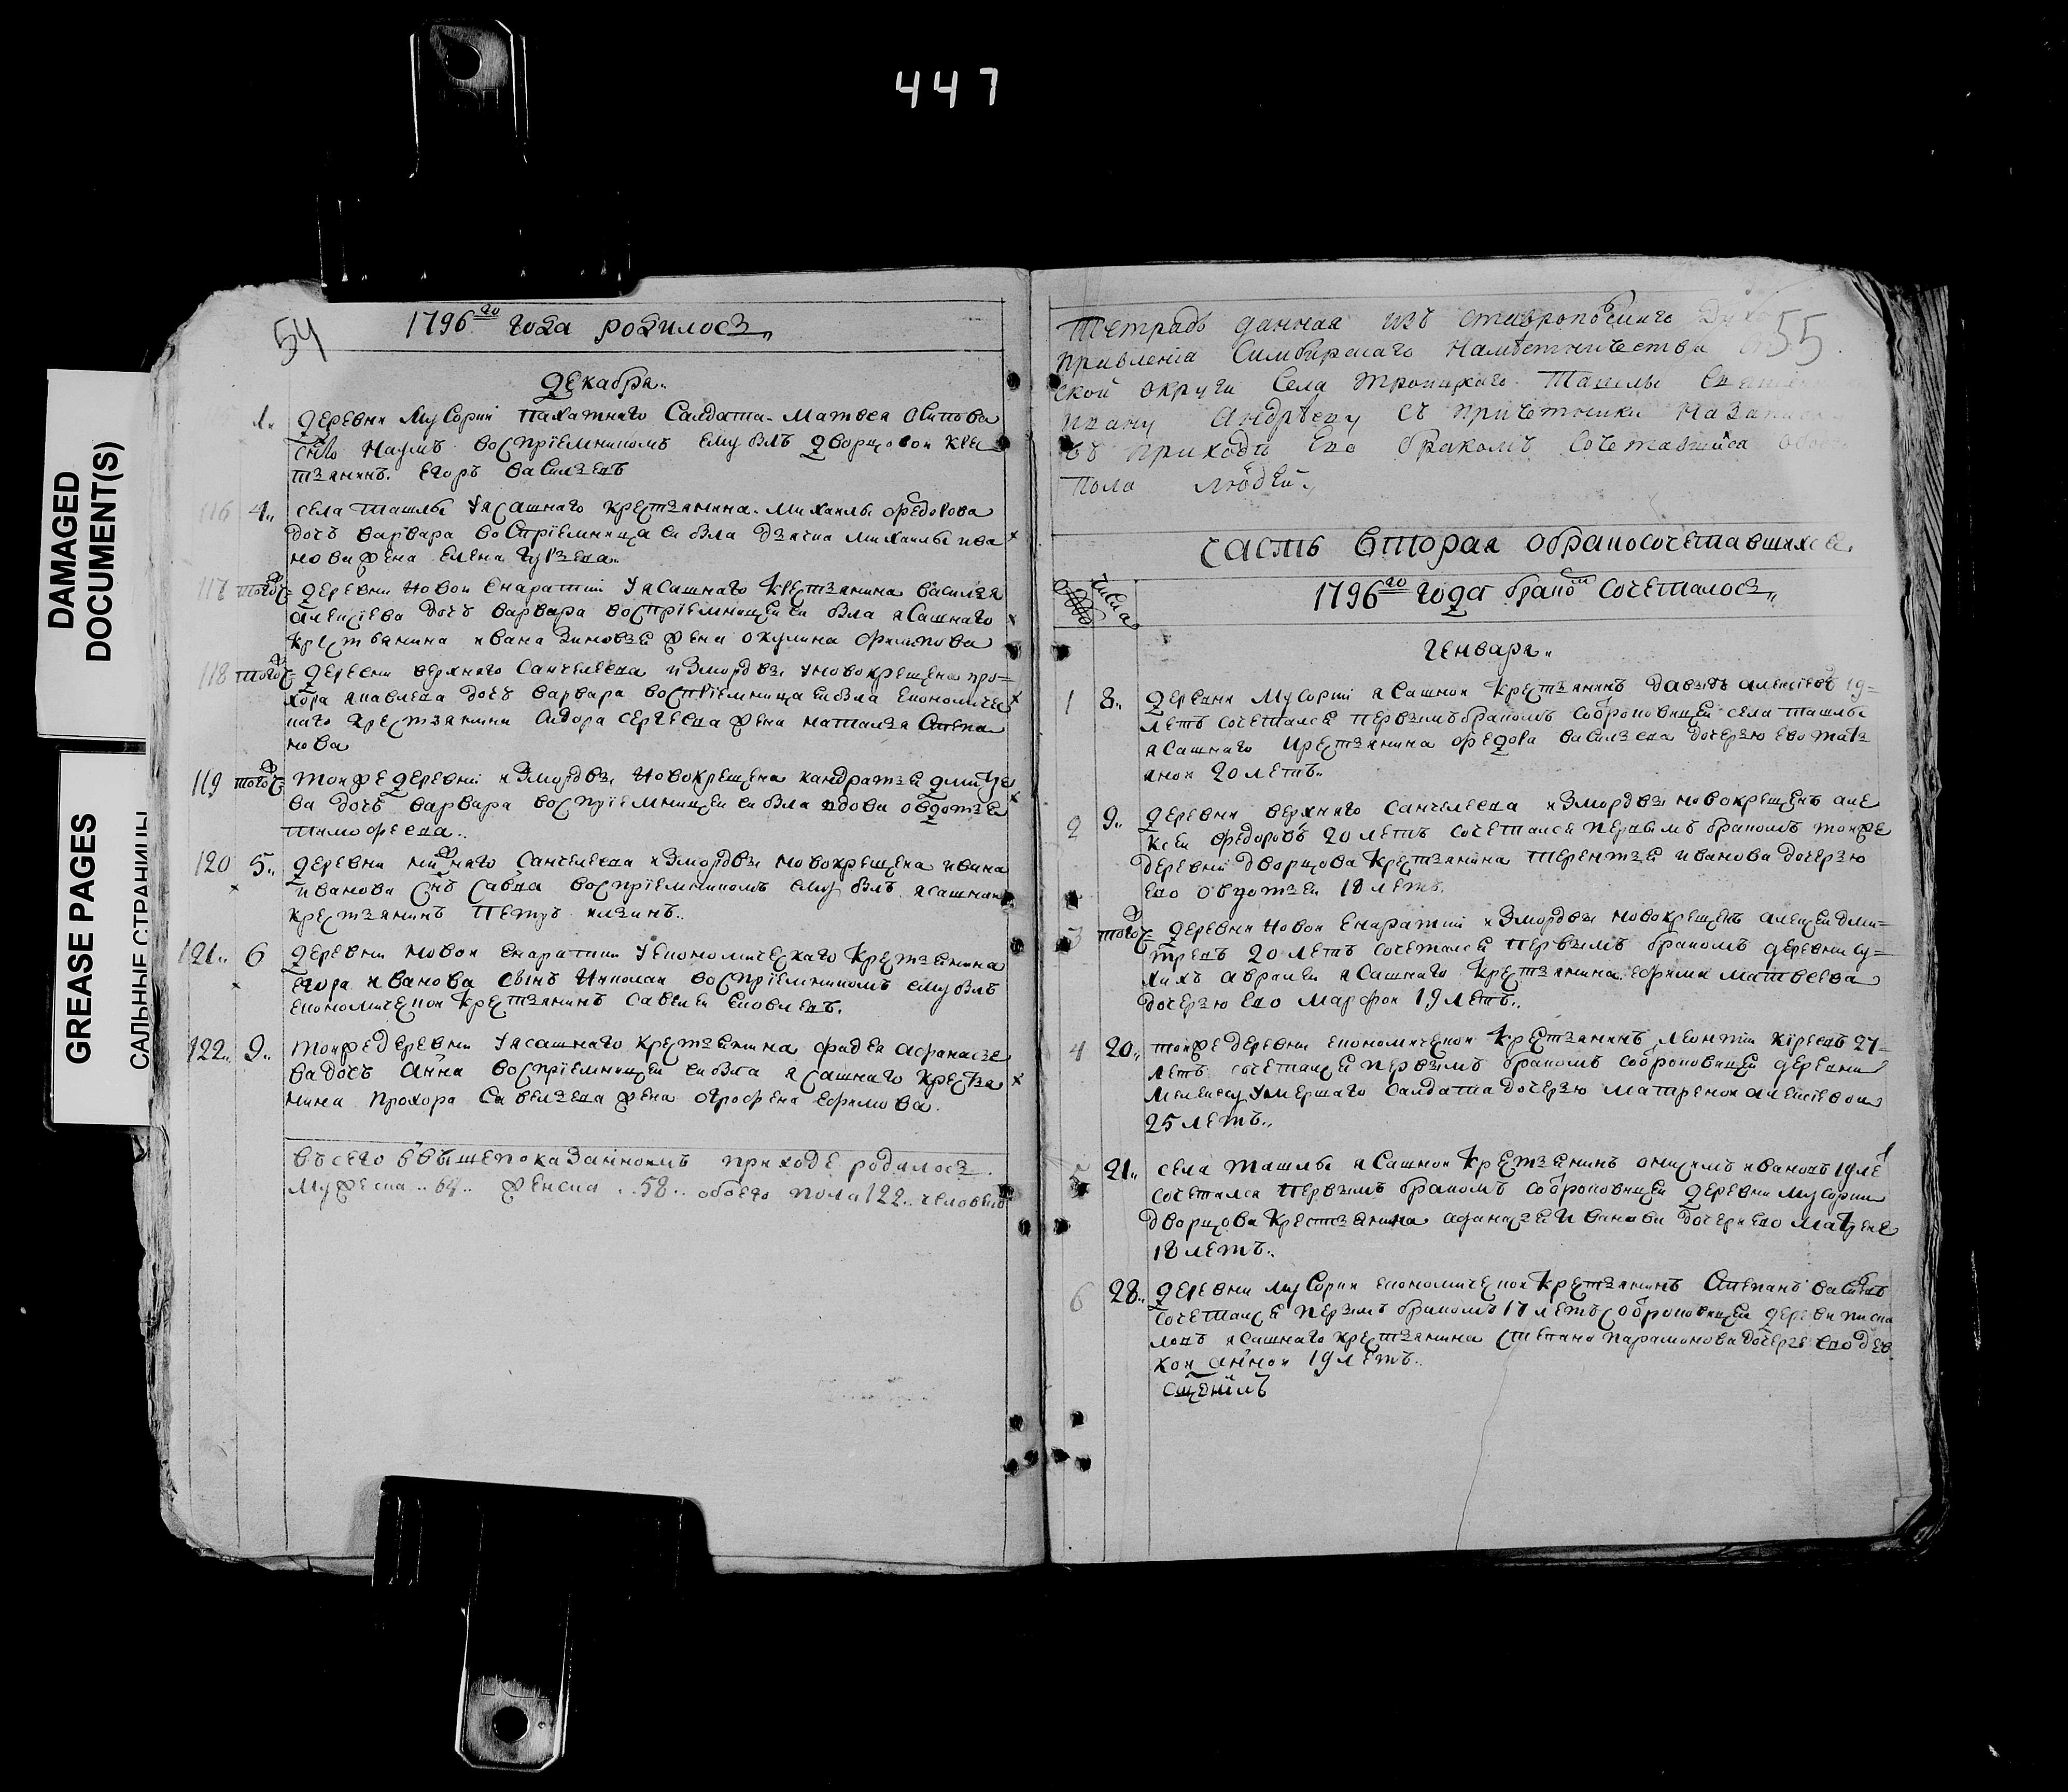 447
DAMAGED
DOCUMENT(S)
GREASE PAGES
САЛЬНЫЕ СТРАНИЦЫ
54
1796го года родилось
Декабря
1. деревни Мусорки пахатнаго Салдата Матвея Осипова
сынъ Наумъ воспрiемникомъ ему былъ дворцовои кре
стьянинъ Егоръ Васильевъ
116 4. села Ташлы уясашнаго крестьянина Михаилы Федорова
дочь варвара воспрiемница еи была дьячка михаилы ива
нова жена Елена Гурьева
117 тогоч деревни новои Екаратки уясашнаго крестьянина василья
алексiева дочь варвара воспрiемницеи еи была ясашнаго
крестьянина ивана Зиновьева жена окулина филипова
118 тогоч деревни верхняго Санчелеева измордвы уновокрещена про=
хора яковлева дочь варвара воспрiемница еи была економичес
каго крестьянина Сидора сергеева жена наталья Степа
нова
119 тогоч тояже деревни измордвы новокрещена кандратья дмитре
ва дочь варвара воспрiемницеи еи была вдова овдотья
тимофеева
120 5. деревни нижняго Санчелеева измордвы новокрещена ивана
иванова снъ Савва воспрiемникомъ ему былъ ясашнои
крестьянинъ Петръ ильинъ
121 6 деревни новои екаратки уекономическаго крестьянина
Егора иванова сынъ Николаи воспрiемникомъ ему былъ
економическои крестьянинъ савелеи яковлевъ.
122 9. тояже деревни уясашнаго крестьянина фадея афанасье
ва дочь Анна воспрiемницеи еи была ясашнаго крестья
нина Прохора Савельева жена огрофена ефимова.
Всего ввышепоказанномъ приходе родилось
Мужеска 64 женска 58 обоего пола 122 человека
55
Тетрадь данная изъ ставропольскаго Духо
правленiя Симбирскаго Наместничества
ской округи Села Троицкаго Ташлы
ивану Андрееву съ причетники
въ приходе Ево бракомъ Сочетавшися
пола людей
часть вторая обракосочетавшихся
числа
1796го года бракомъ сочеталось
генваря
1 8. деревни Мусорки ясашнои крестьянинъ давыдъ алексiевъ 19=
летъ сочетался первымъ бракомъ собраковицеи села ташлы
ясашнаго крестьянина федора васильева дочерью ево татья
яной 20 летъ
2 9. деревни верхняго санчелеева измордвы новокрещенъ але
ксеи федоровъ 20 летъ сочетался первымъ бракомъ тояже
деревни дворцова крестьянина терентья иванова дочерью
ево овдотьеи 18 летъ.
3 тогоч деревни новои екаратки измордвы новокрещенъ алексеи дми-
трiевъ 20 летъ сочетался первымъ бракомъ деревни су-
хихъ авралеи ясашнаго крестьянина ефима матвеева
дочерью ево марфои 19 летъ.
4 20. тояже деревни економическои крестьянинъ леонтiи кiреевъ 27-
летъ сочетался первымъ бракомъ собраковицеи деревни
умершаго салдата дочерью матреною алексiевои
25 летъ.
5 21. села ташлы ясашнои крестьянинъ онисимъ ивановъ 19 ле
сочетался первымъ бракомъ собраковицеи деревни мусорки
дворцова крестьянина афанасья иванова дочери ево матрене
18 летъ.
6 28. деревни мусорки економическои крестьянинъ Степанъ
сочетался первымъ бракомъ 17 летъ собраковицеи деревни писка
ловъ ясашнаго крестьянина степана парамонова дочерью ево дев
кои анною 19 летъ